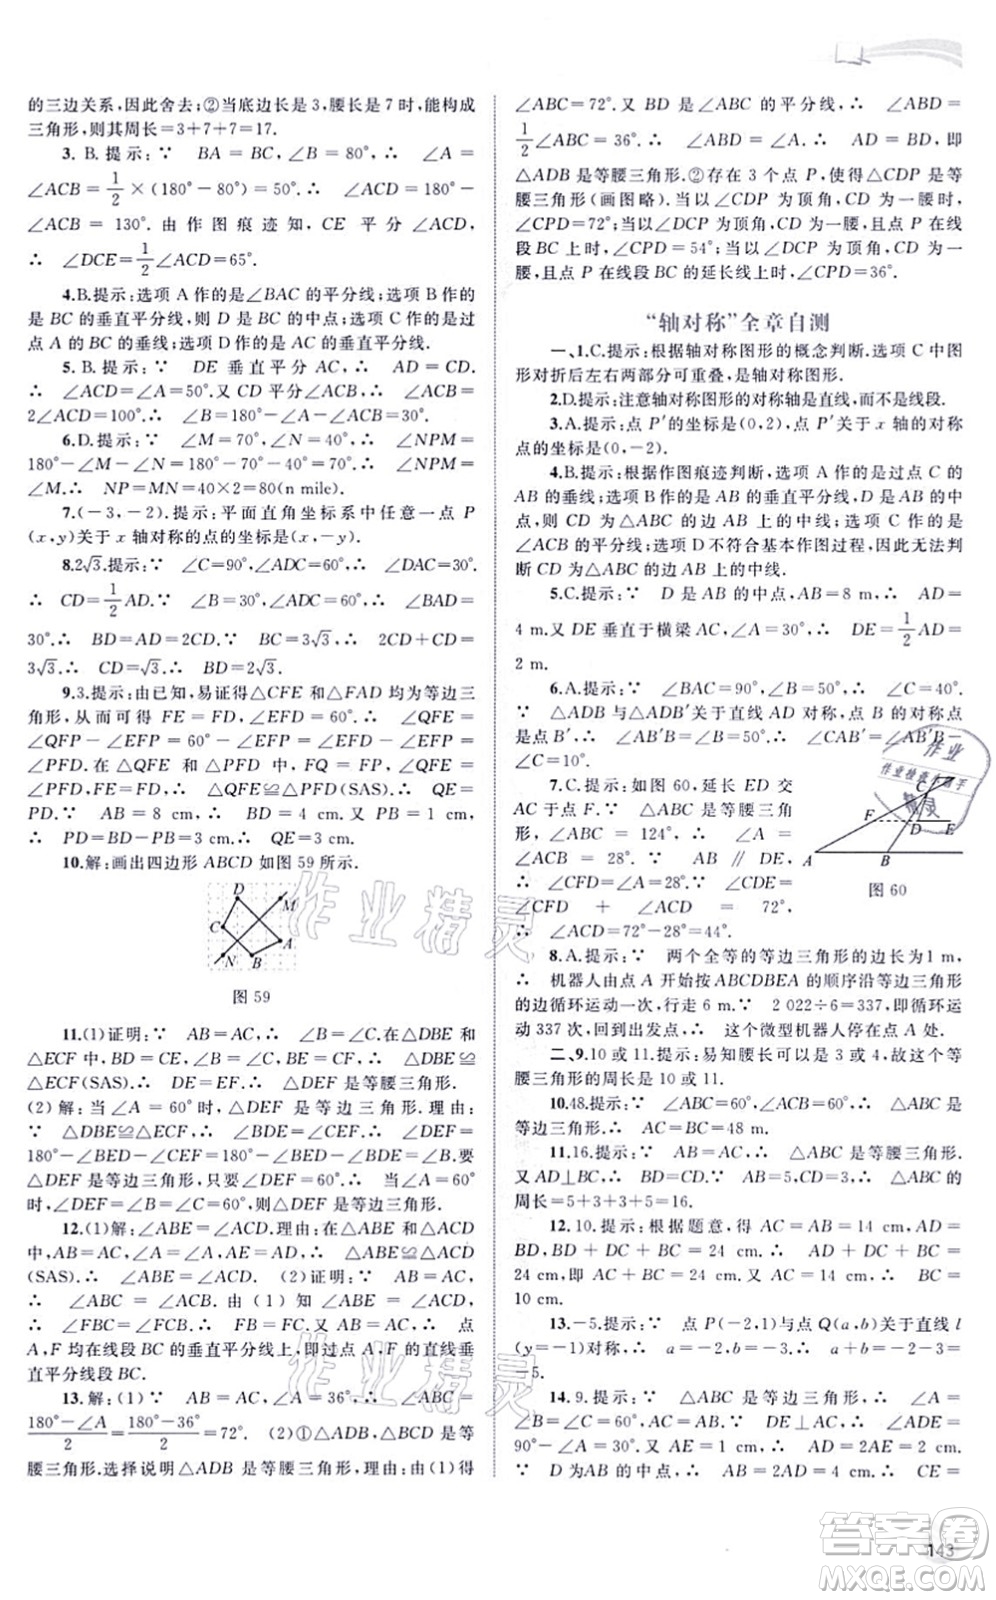 的三边关系,因此舍去;②当底边长是3,腰长是7时,能构成
三角形,则其周长=3+7+7=17.
3. B.提示:∵ BA=BC,∠B=80°,∴ ∠A=
∠ACB=1/2×(180°-80°)=50°.∴ ∠ACD=180°-
∠ACB=130°. 由作图痕迹知,CE 平分∠ACD,
∴ ∠DCE=1/2∠ACD=65°.
4.B.提示:选项 A 作的是∠BAC 的平分线;选项 B 作的
是 BC 的垂直平分线,则 D 是 BC 的中点;选项 C 作的是过点
A 的 BC 的垂线;选项 D 作的是 AC 的垂直平分线.
5. B.提示:∵ DE 垂直平分 AC,∴ AD=CD.∴
∠ACD=∠A=50°.又 CD 平分∠ACB,∴ ∠ACB=
2∠ACD=100°.∴ ∠B=180°-∠A-∠ACB=30°.
6.D.提示:∵ ∠M=70°,∠N=40°,∴ ∠NPM=
180°-∠M-∠N=180°-70°-40°=70°.∴ ∠NPM=
∠M.∴ NP=MN=40×2=80(n mile).
7.(-3,-2).提示:平面直角坐标系中任意一点 P
(x,y)关于 x 轴对称的点的坐标是(x,-y).
8.2√3.提示:∵ ∠C=90°,∠ADC=60°,∴ ∠DAC=30°.
∴ CD=1/2AD.∵ ∠B=30°,∠ADC=60°,∴ ∠BAD=
30°.∴ BD=AD=2CD.∵ BC=3√3,∴ 2CD+CD=
3√3.∴ CD=√3.∴ BD=2√3.
9.3.提示:由已知,易证得△CFE 和△FDP 均为等边三
角形,从而可得 FE=FD,∠EFD=60°.∴ ∠QFE=
∠QFP-∠EFP=60°-∠EFP=∠EFD-∠EFP=
∠PFD.在△QFE 和△PFD 中,FQ=FP,∠QFE=
∠PFD,FE=FD,∴ △QFE≌△PFD(SAS).∴ QE=
PD.∵ BD=BC-CD=4 cm,BP=1 cm,
∴ PD=BD-BP=3 cm.∴ QE=3 cm.
10.解:画出四边形 ABCD 如图 59 所示.
D
M
C
A
N
B
图 59
11.(1)证明:∵ AB=AC,∴ ∠B=∠C.在△DBE 和
△ECF 中,BD=CE,∠B=∠C,BE=CF,∴ △DBE≌
△ECF(SAS).∴ DE=EF.∴ △DEF 是等腰三角形.
(2)解:当∠A=60°时,△DEF 是等边三角形.理由:
∵ △DBE≌△ECF,∴ ∠BDE=∠CEF.∴ ∠DEF=
180°-∠BED-∠CEF=180°-∠BED-∠BDE=∠B.要
△DEF 是等边三角形,只要∠DEF=60°.∴ 当∠A=60°
时,∠DEF=∠B=∠C=60°,则△DEF 是等边三角形.
12.(1)解:∠ABE=∠ACD.理由:在△ABE 和△ACD
中,AB=AC,∠A=∠A,AE=AD,∴ △ABE≌△ACD
(SAS).∴ ∠ABE=∠ACD. (2)证明:∵ AB=AC,
∴ ∠ABC=∠ACB. 由(1)知∠ABE=∠ACD,
∴ ∠FBC=∠FCB.∴ FB=FC.又 AB=AC,∴ 点
A,F 均在线段 BC 的垂直平分线上,即过点 A,F 的直线垂
直平分线段 BC.
13.解:(1)∵ AB=AC,∠A=36°,∴ ∠ABC=
(180°-∠A)/2=(180°-36°)/2=72°. (2)①△ADB,△BCD 是等
腰三角形.选择说明△ADB 是等腰三角形.理由:由(1)得
∠ABC=72°.又 BD 是∠ABC 的平分线,∴ ∠ABD=
1/2∠ABC=36°.∴ ∠ABD=∠A.∴ AD=BD,即
△ADB 是等腰三角形.②存在 3 个点 P,使得△CDP 是等
腰三角形(画图略).当以∠DCP 为顶角,CD 为一腰时,
∠CPD=72°;当以∠DCP 为顶角,CD 为一腰,且点 P 在线
段 BC 上时,∠CPD=54°;当以∠DCP 为顶角,CD 为一
腰,且点 P 在线段 BC 的延长线上时,∠CPD=36°.
“轴对称”全章自测
一、1.C.提示:根据轴对称图形的概念判断.选项 C 中图
形对折后左右两部分可重叠,是轴对称图形.
2.D.提示:注意轴对称图形的对称轴是直线,而不是线段.
3.A.提示:点 P′的坐标是(0,2),点 P′关于 x 轴的对称
点的坐标是(0,-2).
4.B.提示:根据作图痕迹判断,选项 A 作的是过点 C 的
AB 的垂线;选项 B 作的是 AB 的垂直平分线,D 是 AB 的中
点,则 CD 为△ABC 的边 AB 上的中线;选项 C 作的是
∠ACB 的平分线;选项 D 不符合基本作图过程,因此无法判
断 CD 为△ABC 的边 AB 上的中线.
5.C.提示:∵ D 是 AB 的中点,AB=8 m,∴ AD=
4 m.又 DE 垂直于横梁 AC,∠A=30°,∴ DE=1/2AD=
2 m.
6.A.提示:∵ ∠BAC=90°,∠B=50°,∴ ∠C=40°.
∵ △ADB 与△ADB′关于直线 AD 对称,点 B 的对称点
是点 B′,∴ ∠AB′B=∠B=50°.∴ ∠CAB′=∠AB′B-
∠C=10°.
7.C.提示:如图 60,延长 ED 交
AC 于点 F.∵ △ABC 是等腰三角
形,∠ABC=124°,∴ ∠A=
∠ACB=28°.∵ AB∥DE,
∴ ∠CFD=∠A=28°.∵ ∠CDE=
∠CFD+∠ACD=72°,
∴ ∠ACD=72°-28°=44°.
C
F
D
E
A
B
图 60
8.A.提示:∵ 两个全等的等边三角形的边长为1 m,
∴ 机器人由点 A 开始按 ABCDBEA 的顺序沿等边三角形
的边循环运动一次,行走 6 m.∵ 2 022÷6=337,即循环运
动 337 次,回到出发点,∴ 这个微型机器人停在点 A 处.
二、9.10 或 11.提示:易知腰长可以是3 或4,故这个等
腰三角形的周长是 10 或 11.
10.48.提示:∵ ∠BAC=60°,∠ABC=60°,∴ △ABC 是
等边三角形.∴ AC=BC=48 m.
11.16.提示:∵ AB=AC,∴ △ABC 是等腰三角形.
又 AD⊥BC,∴ BD=CD.∵ AB=5,CD=3,∴ △ABC 的
周长=5+3+3+5=16.
12.10.提示:根据题意,得 AC=AB=14 cm,AD=
BD,BD+DC+BC=24 cm,∴ AD+DC+BC=
24 cm,即 AC+BC=24 cm.∴ BC=24-14=
10 cm.
13.-5.提示:∵ 点 P(-2,b)与点 Q(a,-3)关于直线 l
(y=-1)对称,∴ a=-2,b=1.∴ a-b=-2-3=
-5.
14.9.提示:∵ △ABC 是等边三角形,∴ ∠A=
∠B=∠ACB=60°.∵ DE⊥AC,∴ ∠ADE=
90°-∠A=30°.∵ AE=1,∴ AD=2AE=2.
∵ D 为 AB 的中点,∴ AB=2AD=4.∴ CE=
143
答案圈
MXQE.COM
作业精灵
作业精灵
作业
作业检查小助手
精灵